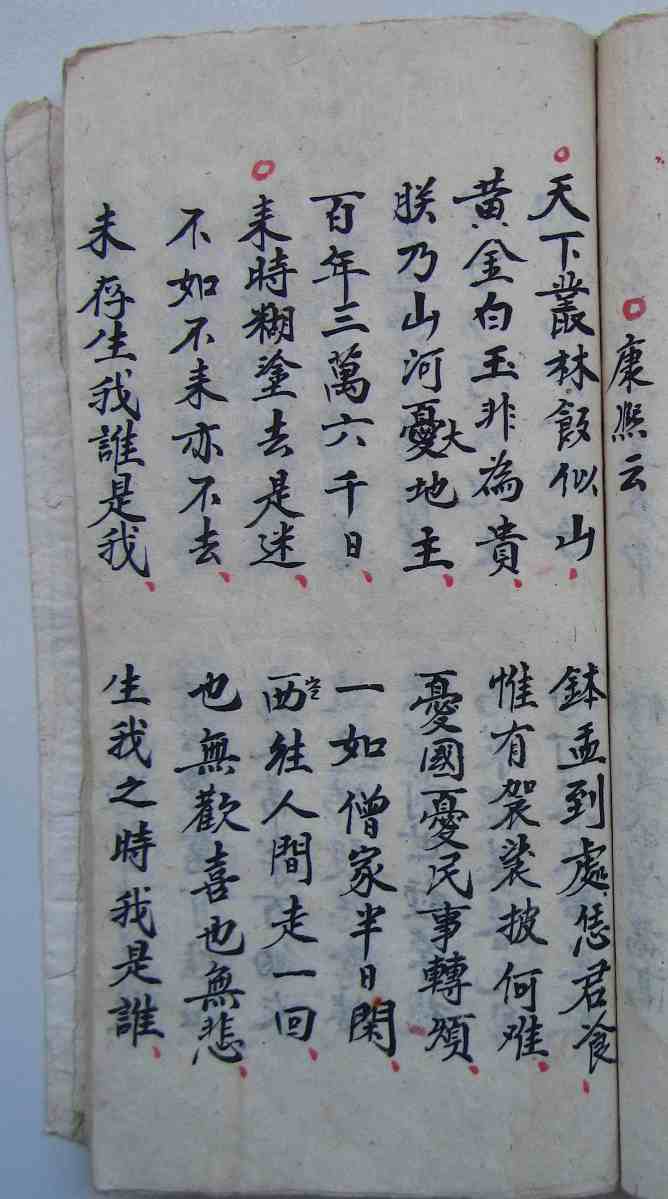 康熙云
天下叢林飯似山 鉢盂到處恁君飡
黃金白玉非為貴 惟有袈裟披何难
朕乃山河大地主 憂國憂民事轉煩
百年三萬六千日 一如僧家半日閑
耒時糊塗去是迷 西往人間走一回
不如不耒亦不去 也無歡喜也無悲
未存生我誰是我 生我之時我是誰